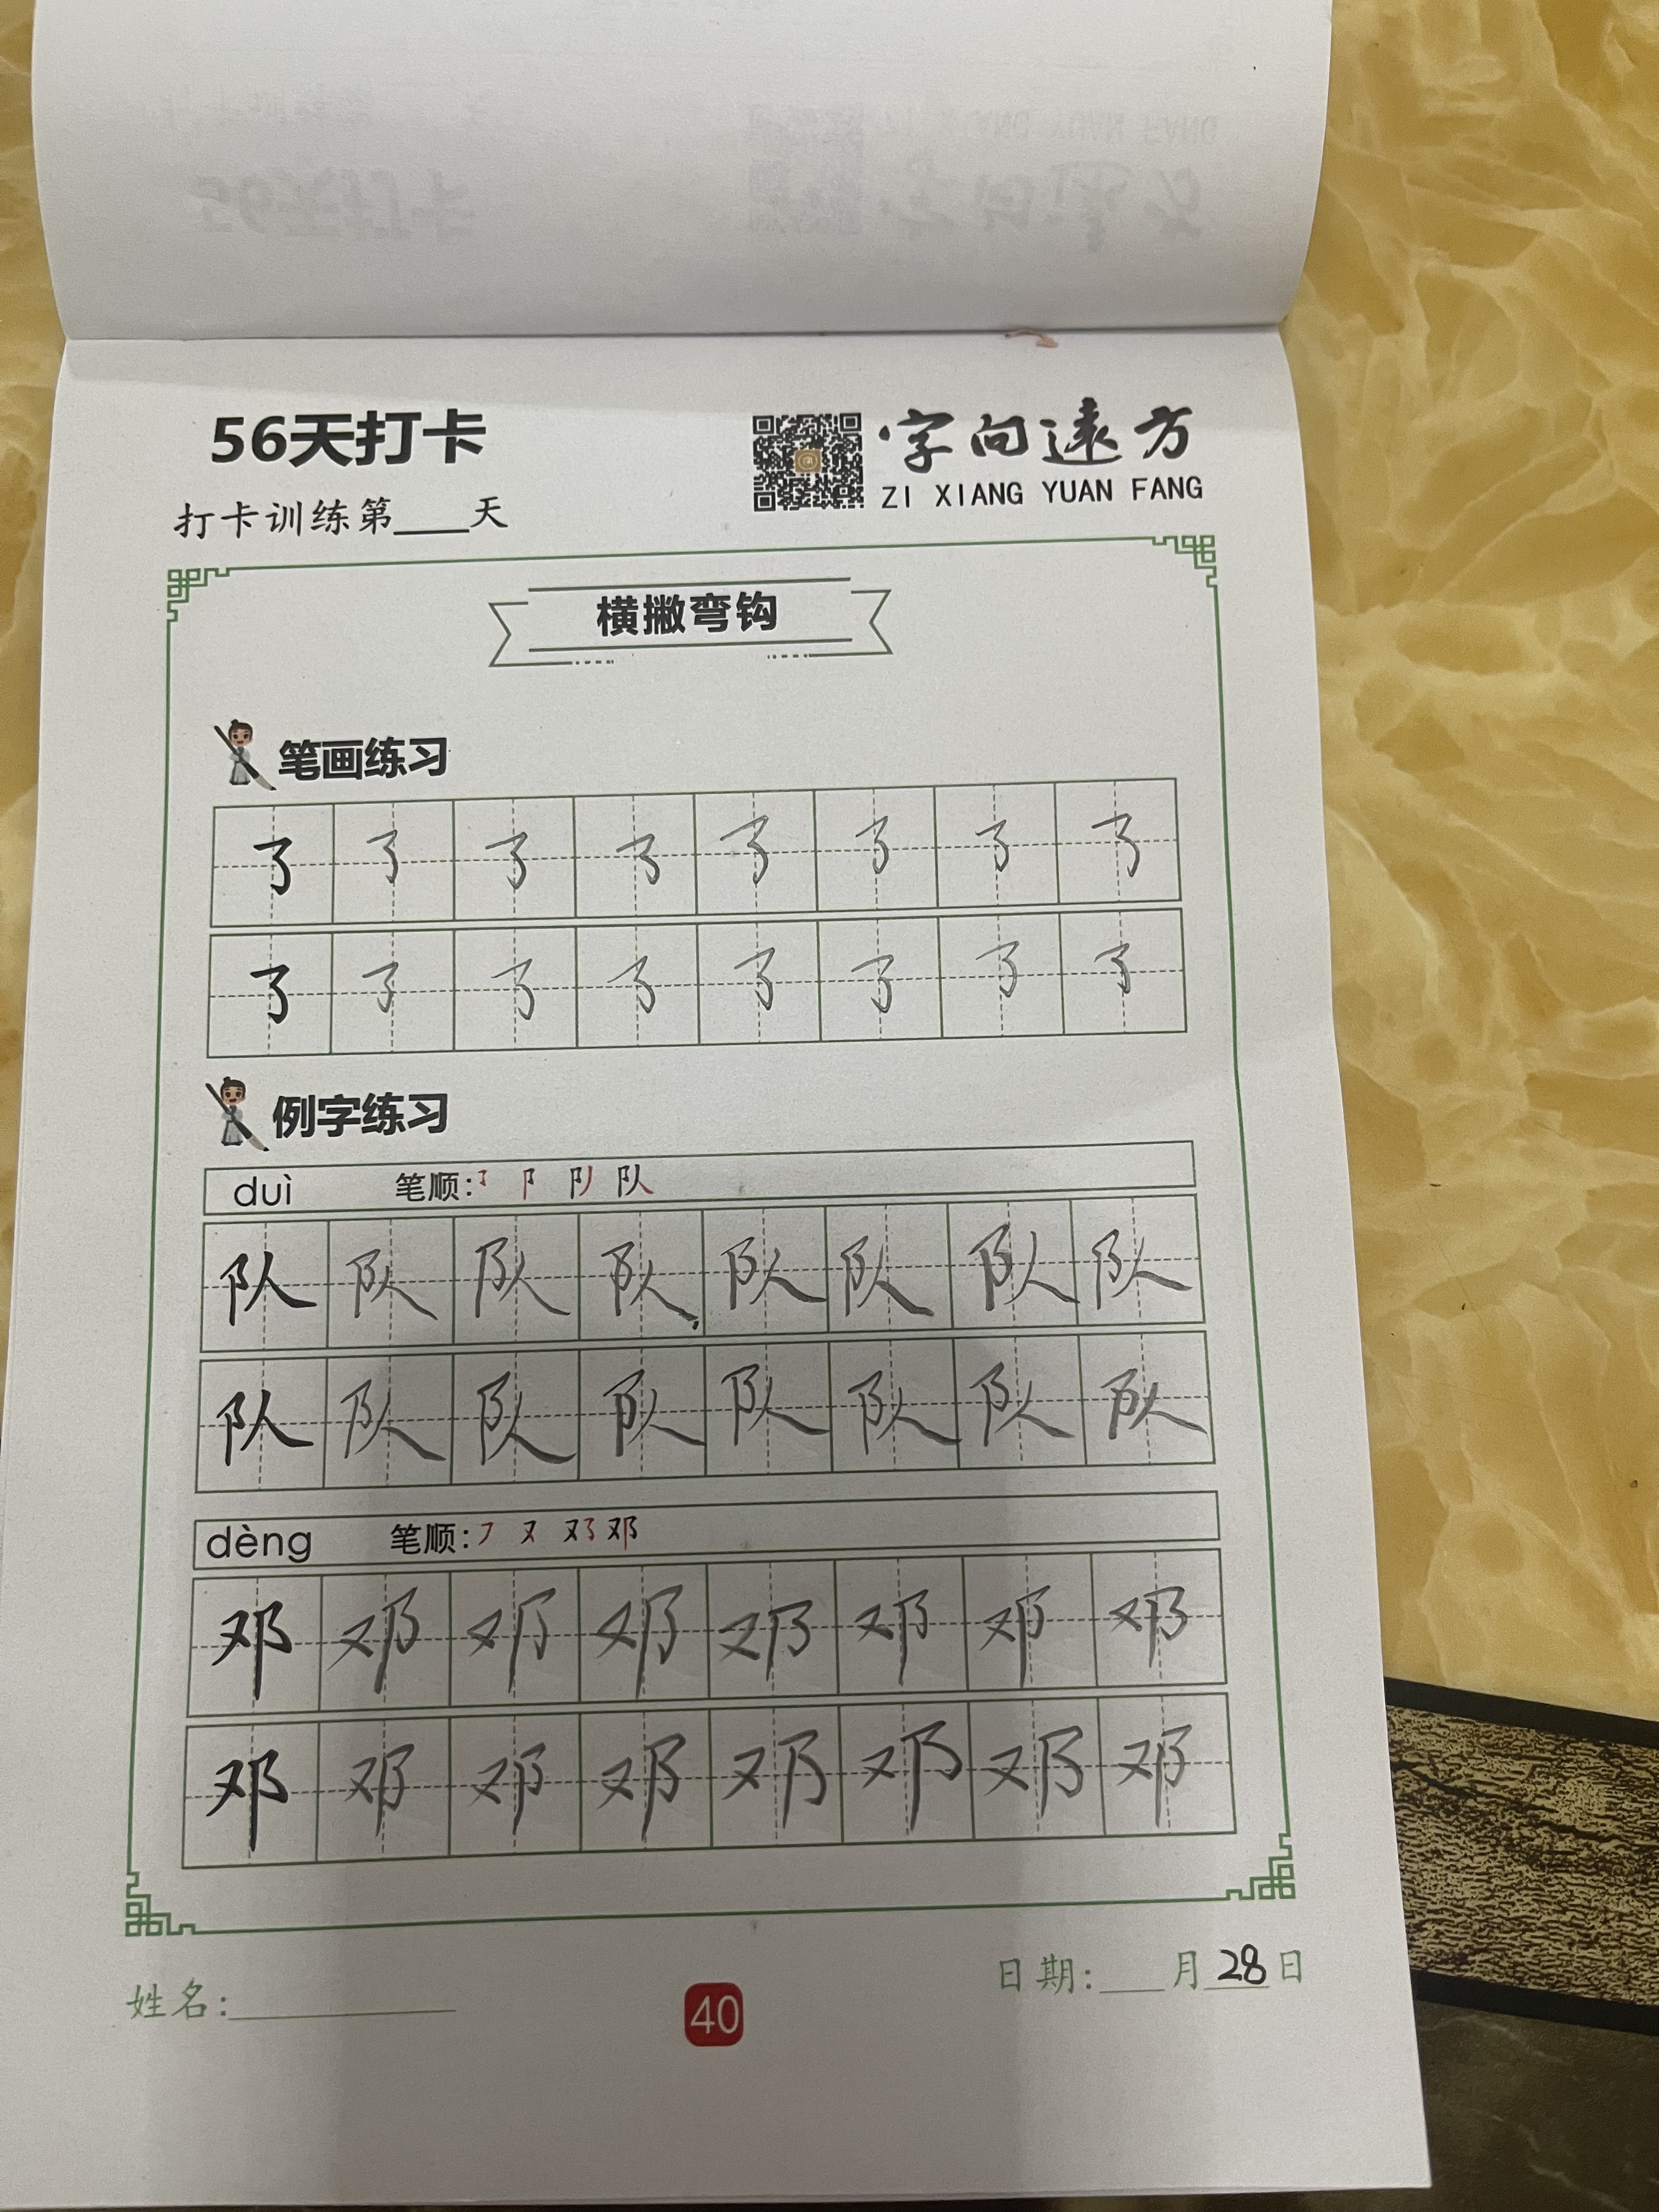 56天打卡
字向远方
ZI XIANG YUAN FANG
打卡训练第____天
横撇弯钩
笔画练习
㇌ ㇌ ㇌ ㇌ ㇌ ㇌ ㇌ ㇌
㇌ ㇌ ㇌ ㇌ ㇌ ㇌ ㇌ ㇌
例字练习
duì 笔顺: ㇌ 阝 队
队 队 队 队 队 队 队 队
队 队 队 队 队 队 队 队
dèng 笔顺: ㇇ 又 邓
邓 邓 邓 邓 邓 邓 邓 邓
邓 邓 邓 邓 邓 邓 邓 邓
姓名:
40
日期:___月28日